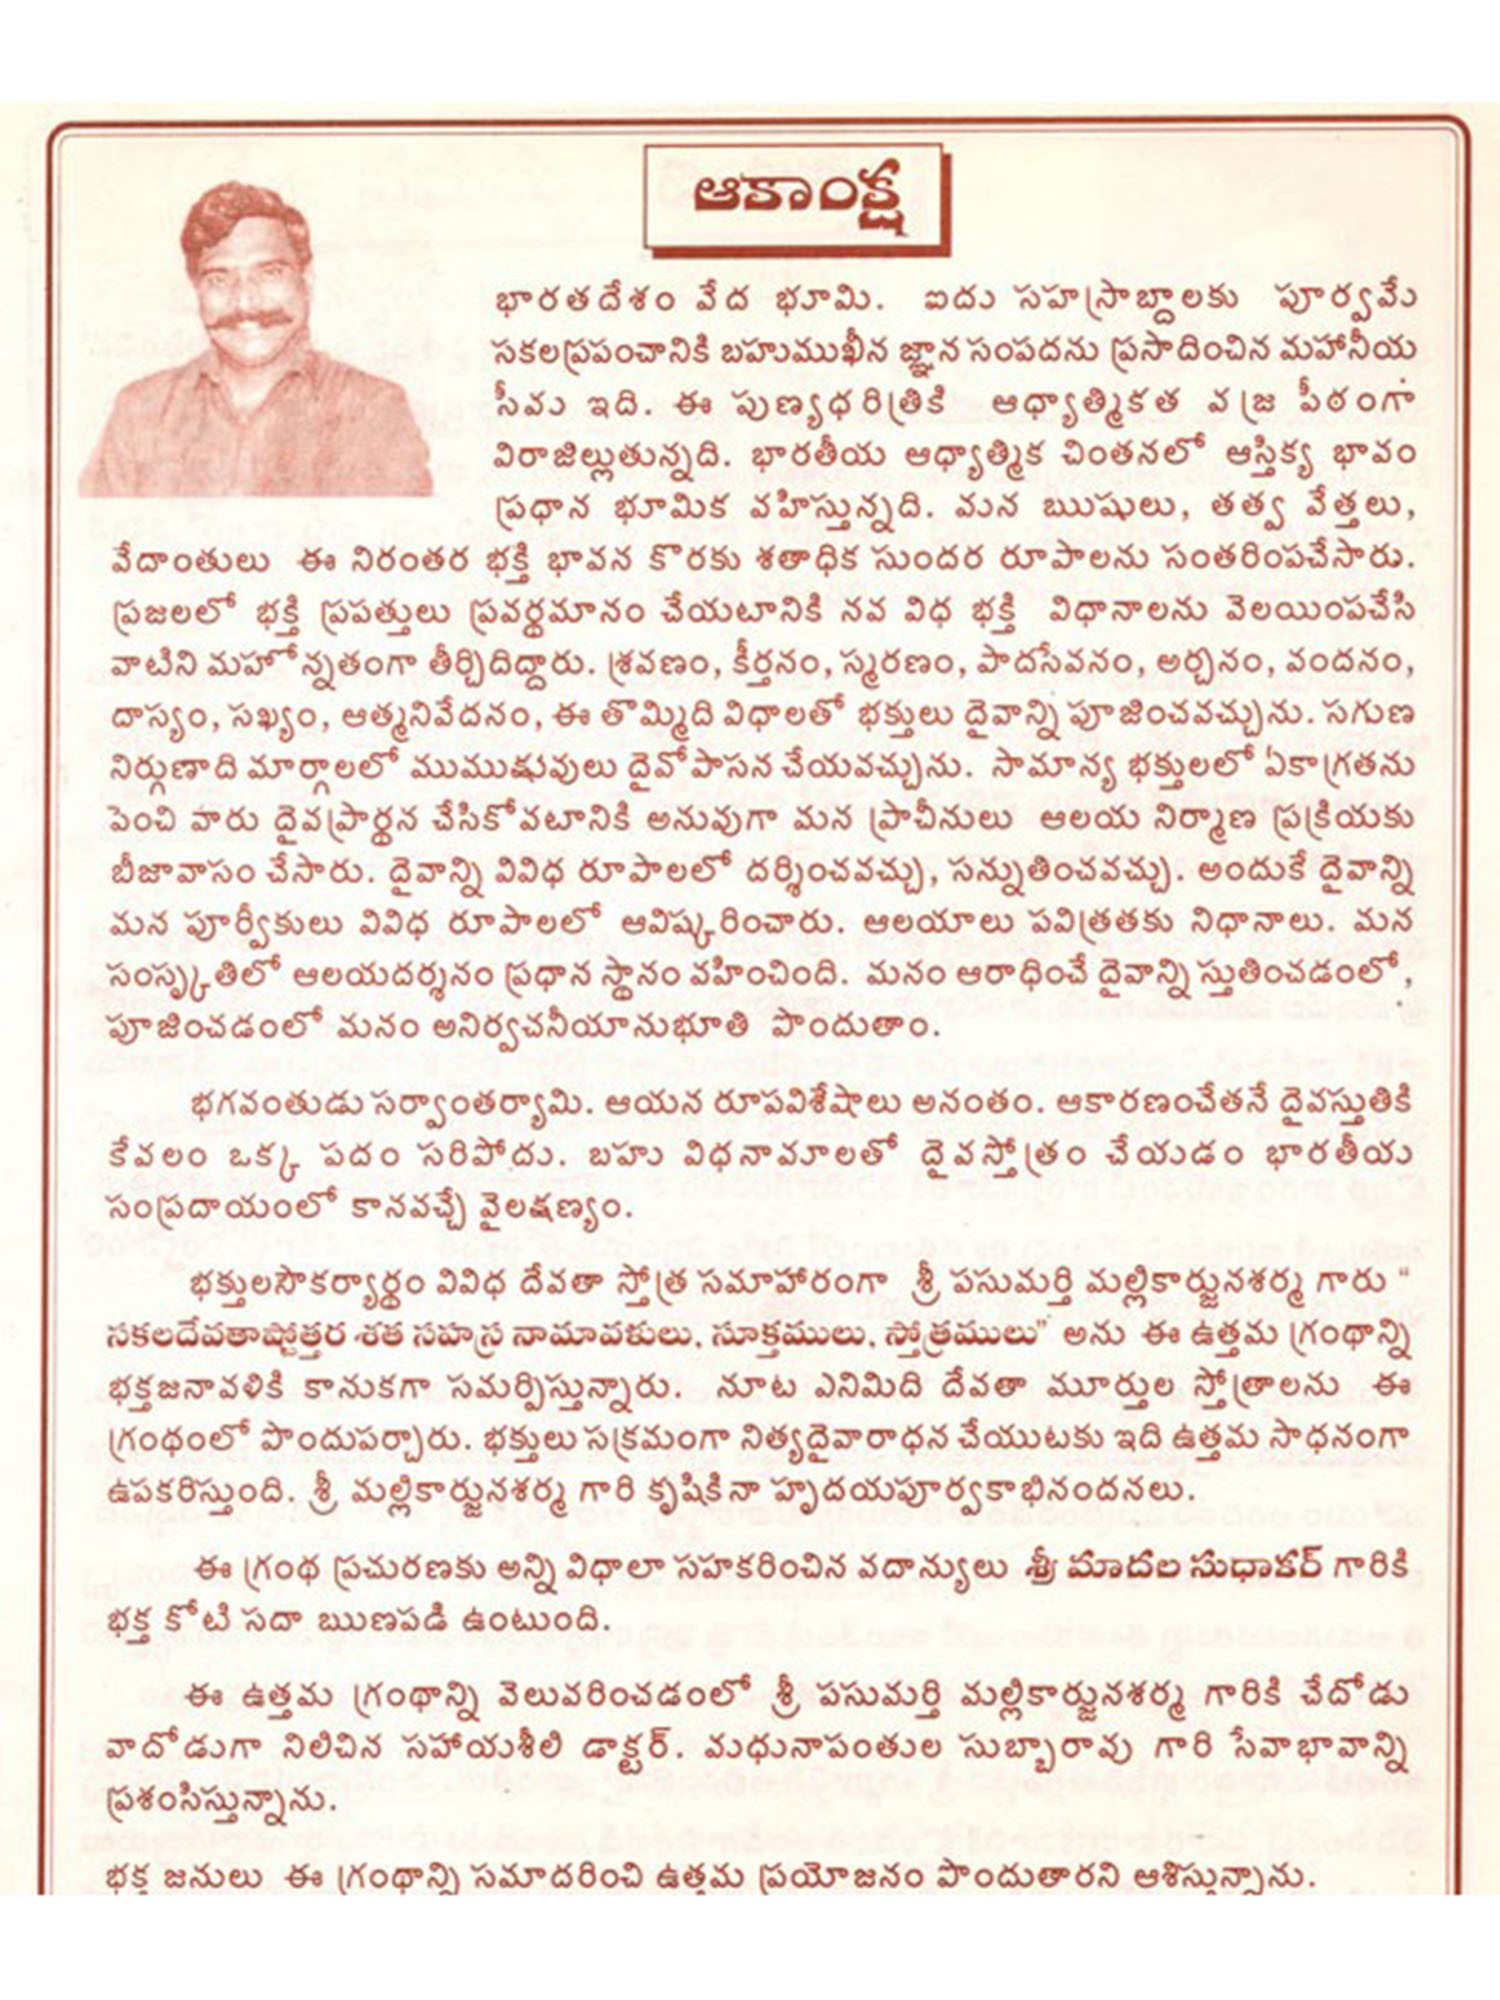 ఆకాంక్ష
భారతదేశం వేద భూమి. ఐదు సహస్రాబ్దాలకు పూర్వమే
సకలప్రపంచానికి బహుముఖీన జ్ఞాన సంపదను ప్రసాదించిన మహనీయ
సీమ ఇది. ఈ పుణ్యధరిత్రికి ఆధ్యాత్మికత వజ్ర పీఠంగా
విరాజిల్లుతున్నది. భారతీయ ఆధ్యాత్మిక చింతనలో ఆస్తిక్య భావం
ప్రధాన భూమిక వహిస్తున్నది. మన ఋషులు, తత్వ వేత్తలు,
వేదాంతులు ఈ నిరంతర భక్తి భావన కొరకు శతాధిక సుందర రూపాలను సంతరింపచేసారు.
ప్రజలలో భక్తి ప్రపత్తులు ప్రవర్థమానం చేయటానికి నవ విధ భక్తి విధానాలను వెలయింపచేసి
వాటిని మహోన్నతంగా తీర్చిదిద్దారు. శ్రవణం, కీర్తనం, స్మరణం, పాదసేవనం, అర్చనం, వందనం,
దాస్యం, సఖ్యం, ఆత్మనివేదనం, ఈ తొమ్మిది విధాలతో భక్తులు దైవాన్ని పూజించవచ్చును. సగుణ
నిర్గుణాది మార్గాలలో ముముక్షువులు దైవోపాసన చేయవచ్చును. సామాన్య భక్తులలో ఏకాగ్రతను
పెంచి వారు దైవప్రార్థన చేసికోవటానికి అనువుగా మన ప్రాచీనులు ఆలయ నిర్మాణ ప్రక్రియకు
బీజావాసం చేసారు. దైవాన్ని వివిధ రూపాలలో దర్శించవచ్చు, సన్నుతించవచ్చు. అందుకే దైవాన్ని
మన పూర్వీకులు వివిధ రూపాలలో ఆవిష్కరించారు. ఆలయాలు పవిత్రతకు నిధానాలు. మన
సంస్కృతిలో ఆలయదర్శనం ప్రధాన స్థానం వహించింది. మనం ఆరాధించే దైవాన్ని స్తుతించడంలో,
పూజించడంలో మనం అనిర్వచనీయానుభూతి పొందుతాం.
భగవంతుడు సర్వాంతర్యామి. ఆయన రూపవిశేషాలు అనంతం. ఆకారణంచేతనే దైవస్తుతికి
కేవలం ఒక్క పదం సరిపోదు. బహు విధనామాలతో దైవస్తోత్రం చేయడం భారతీయ
సంప్రదాయంలో కానవచ్చే వైలక్షణ్యం.
భక్తులసౌకర్యార్థం వివిధ దేవతా స్తోత్ర సమాహారంగా శ్రీ పసుమర్తి మల్లికార్జునశర్మ గారు “
సకలదేవతాష్టోత్తర శత సహస్ర నామావళులు, సూక్తములు, స్తోత్రములు” అను ఈ ఉత్తమ గ్రంథాన్ని
భక్తజనావళికి కానుకగా సమర్పిస్తున్నారు. నూట ఎనిమిది దేవతా మూర్తుల స్తోత్రాలను ఈ
గ్రంథంలో పొందుపర్చారు. భక్తులు సక్రమంగా నిత్యదైవారాధన చేయుటకు ఇది ఉత్తమ సాధనంగా
ఉపకరిస్తుంది. శ్రీ మల్లికార్జునశర్మ గారి కృషికినా హృదయపూర్వకాభినందనలు.
ఈ గ్రంథ ప్రచురణకు అన్ని విధాలా సహకరించిన వదాన్యులు శ్రీ మాదల సుధాకర్ గారికి
భక్త కోటి సదా ఋణపడి ఉంటుంది.
ఈ ఉత్తమ గ్రంథాన్ని వెలువరించడంలో శ్రీ పసుమర్తి మల్లికార్జునశర్మ గారికి చేదోడు
వాదోడుగా నిలిచిన సహాయశీలి డాక్టర్. మధునాపంతుల సుబ్బారావు గారి సేవాభావాన్ని
ప్రశంసిస్తున్నాను.
భక్త జనులు ఈ గ్రంథాన్ని సమాదరించి ఉత్తమ ప్రయోజనం పొందుతారని ఆశిస్తున్నాను.